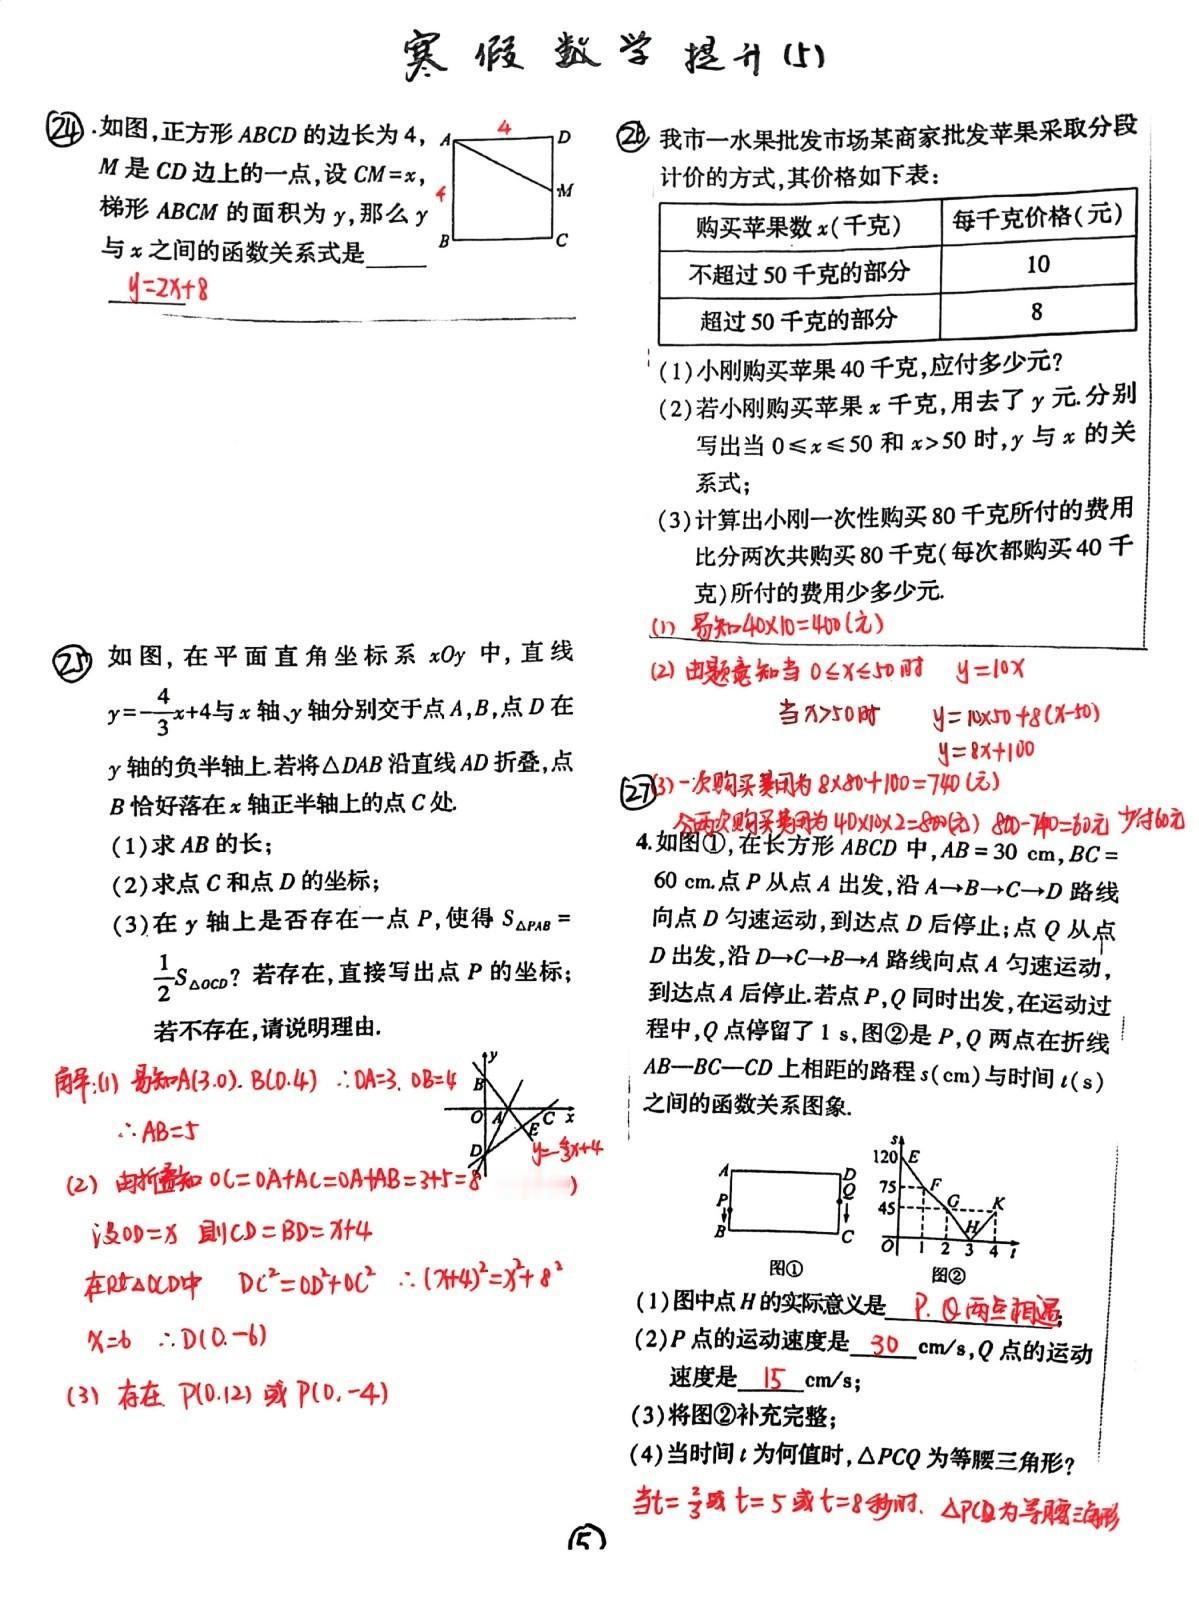 寒假数学提升(5)
㉔.如图,正方形ABCD的边长为4,
M是CD边上的一点,设CM=x,
梯形ABCM的面积为y,那么y
与x之间的函数关系式是____
y=2x+8
A 4 D
4 M
B C
㉕ 如图,在平面直角坐标系xOy中,直线
y=-4/3x+4与x轴、y轴分别交于点A,B,点D在
y轴的负半轴上.若将△DAB沿直线AD折叠,点
B恰好落在x轴正半轴上的点C处.
(1)求AB的长;
(2)求点C和点D的坐标;
(3)在y轴上是否存在一点P,使得S△PAB=
1/2S△OCD?若存在,直接写出点P的坐标;
若不存在,请说明理由.
解:(1) 易知A(3.0).B(0.4) ∴OA=3.OB=4
∴AB=5
(2) 由折叠知OC=OA+AC=OA+AB=3+5=8
设OD=x 则CD=BD=x+4
在Rt△OCD中 DC²=OD²+OC² ∴(x+4)²=x²+8²
x=6 ∴D(0.-6)
(3) 存在 P(0.12)或P(0.-4)
y
B
O A C x
E
D y=-4/3x+4
㉖ 我市一水果批发市场某商家批发苹果采取分段
计价的方式,其价格如下表:
购买苹果数x(千克) 每千克价格(元)
不超过50千克的部分 10
超过50千克的部分 8
(1)小刚购买苹果40千克,应付多少元?
(2)若小刚购买苹果x千克,用去了y元.分别
写出当0≤x≤50和x>50时,y与x的关
系式;
(3)计算出小刚一次性购买80千克所付的费用
比分两次共购买80千克(每次都购买40千
克)所付的费用少多少元.
(1) 易知40×10=400(元)
(2) 由题意知当0≤x≤50时 y=10x
当x>50时 y=10×50+8(x-50)
y=8x+100
(3)一次购买费用为8×80+100=740(元)
分两次购买费用为40×10×2=800(元) 800-740=60元 少付60元
㉗
4.如图①,在长方形ABCD中,AB=30 cm,BC=
60 cm.点P从点A出发,沿A→B→C→D路线
向点D匀速运动,到达点D后停止;点Q从点
D出发,沿D→C→B→A路线向点A匀速运动,
到达点A后停止.若点P,Q同时出发,在运动过
程中,Q点停留了1 s,图②是P,Q两点在折线
AB—BC—CD上相距的路程s(cm)与时间t(s)
之间的函数关系图象.
A D
P Q
B C
图①
s
120 E
75 F
45 G K
H
O 1 2 3 4 t
图②
(1)图中点H的实际意义是 P.Q两点相遇;
(2)P点的运动速度是 30 cm/s,Q点的运动
速度是 15 cm/s;
(3)将图②补充完整;
(4)当时间t为何值时,△PCQ为等腰三角形?
当t=2/3或t=5或t=8秒时.△PCQ为等腰三角形
⑤